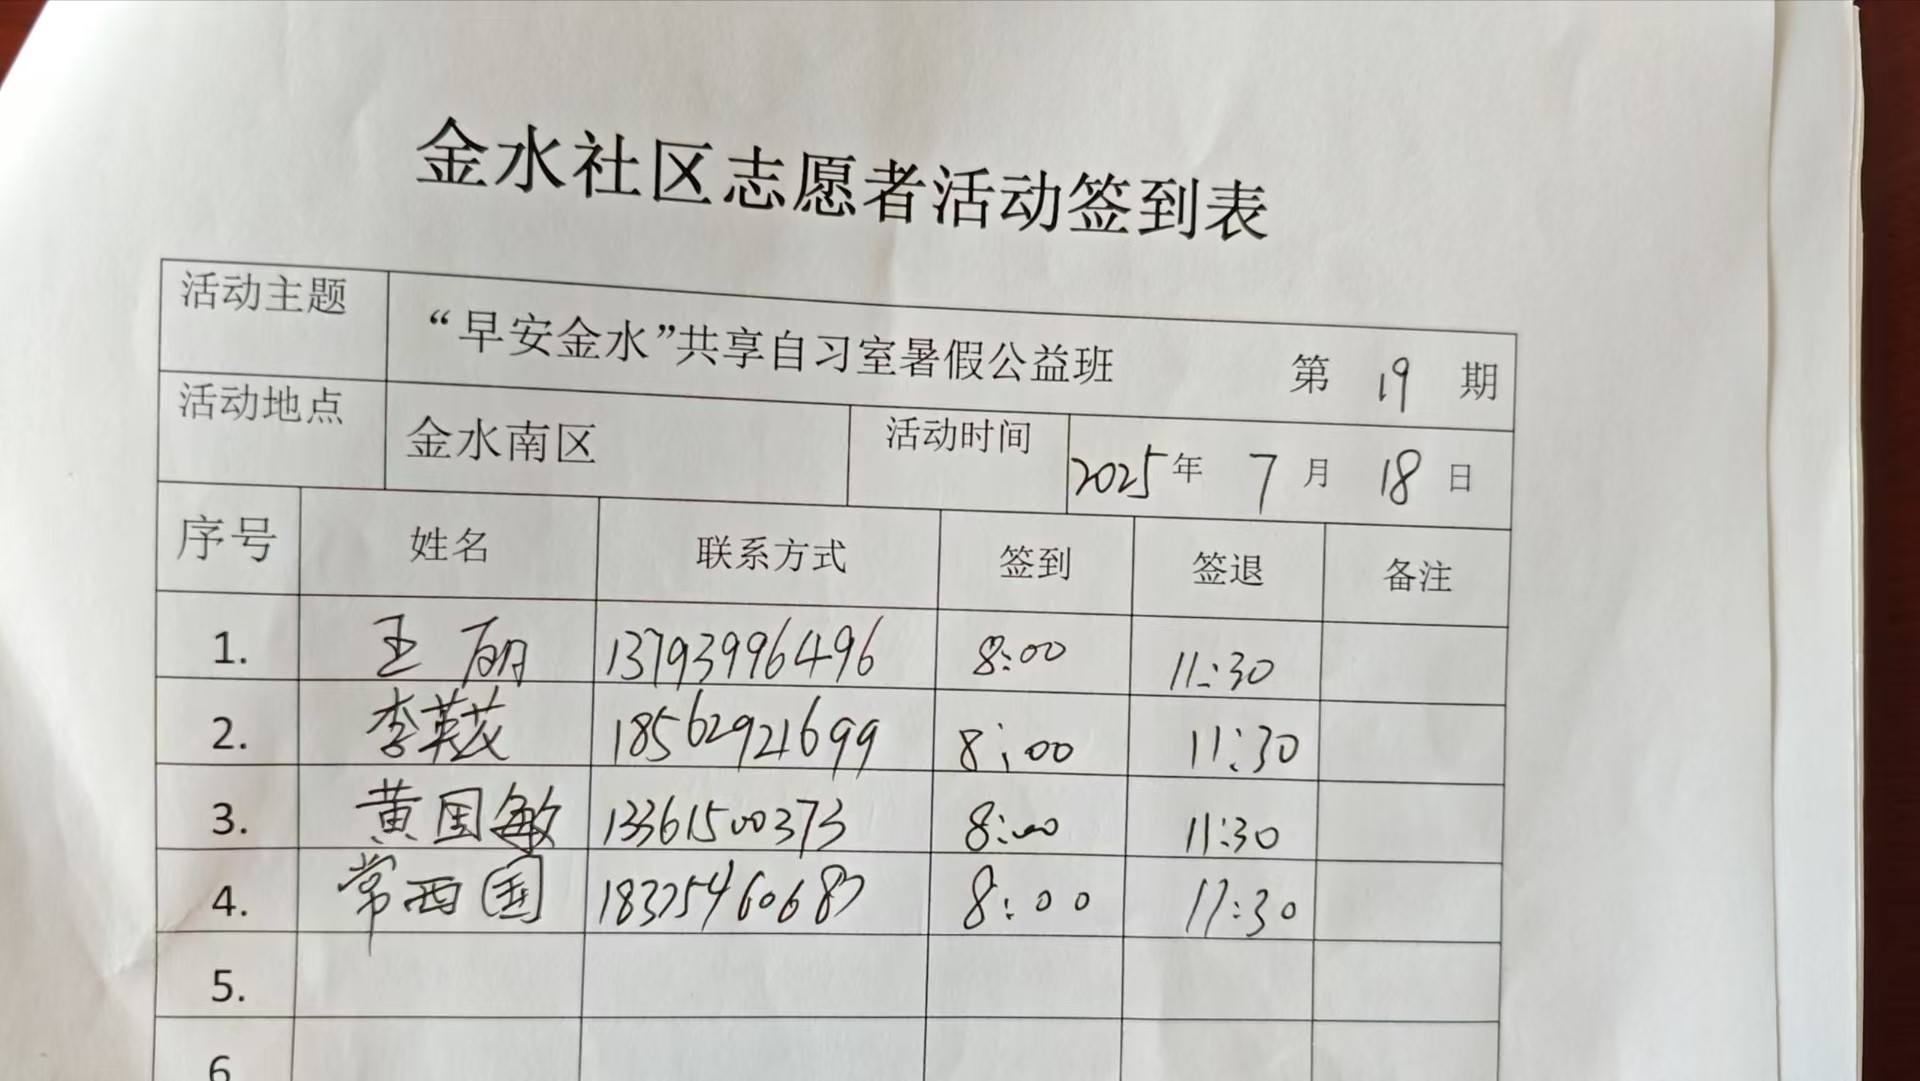 金水社区志愿者活动签到表
活动主题 “早安金水”共享自习室暑假公益班 第 19 期
活动地点 金水南区 活动时间 2025年 7 月 18 日
序号 姓名 联系方式 签到 签退 备注
1. 王丽 13793996496 8:00 11:30
2. 李英 18562921699 8:00 11:30
3. 黄国敏 13361500373 8:00 11:30
4. 常西国 8:00 11:30
5.
6